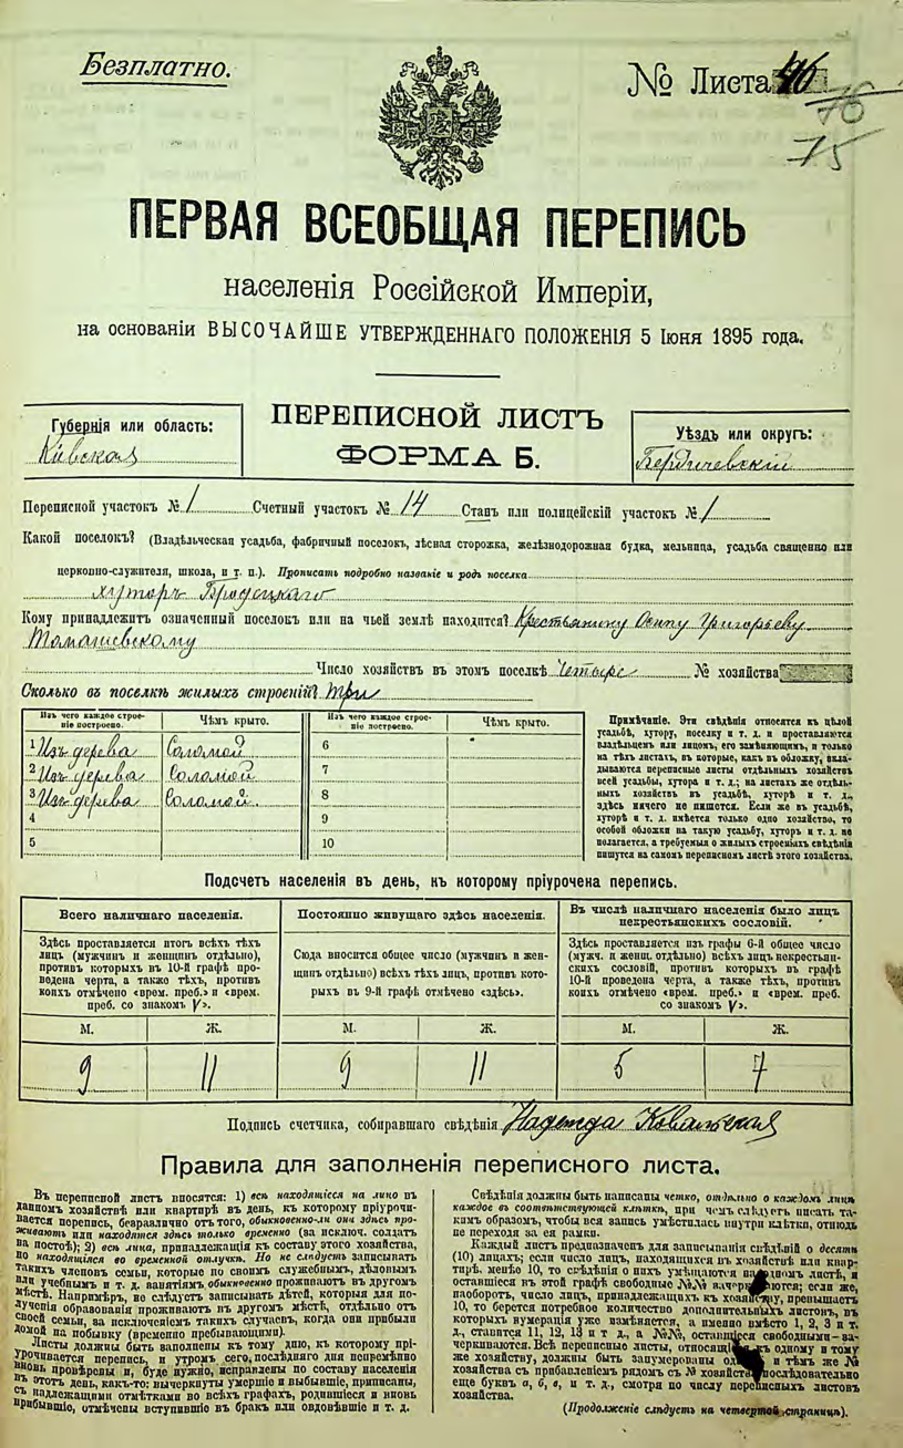 Безплатно.
№ Листа 46
76
75
ПЕРВАЯ ВСЕОБЩАЯ ПЕРЕПИСЬ
населенія Россійской Имперіи,
на основаніи ВЫСОЧАЙШЕ УТВЕРЖДЕННАГО ПОЛОЖЕНІЯ 5 Іюня 1895 года.
ПЕРЕПИСНОЙ ЛИСТЪ
ФОРМА Б.
Губернія или область:
Кіевская
Уѣздъ или округъ:
Бердичевскій
Переписной участокъ № 1 Счетный участокъ № 14 Станъ или полицейскій участокъ № 1
Какой поселокъ? (Владѣльческая усадьба, фабричный поселокъ, лѣсная сторожка, желѣзнодорожная будка, мельница, усадьба священно или
церковно-служителя, школа, и т. п.). Прописать подробно названіе и родъ поселка
хуторъ Бродецкаго
Кому принадлежитъ означенный поселокъ или на чьей землѣ находится? Крестьянину Осипу Григорьеву
Томашевскому
Число хозяйствъ въ этомъ поселкѣ Четыре № хозяйства
Сколько въ поселкѣ жилыхъ строеній? Три
Изъ чего каждое строеніе построено. Чѣмъ крыто. Изъ чего каждое строеніе построено. Чѣмъ крыто.
1 Изъ дерева Соломой 6
2 Изъ дерева Соломой 7
3 Изъ дерева Соломой. 8
4 9
5 10
Примѣчаніе. Эти свѣдѣнія относятся къ цѣлой
усадьбѣ, хутору, поселку и т. д. и проставляются
владѣльцемъ или лицомъ, его замѣняющимъ, и только
на тѣхъ листахъ, въ которые, какъ въ обложку, вкла-
дываются переписные листы отдѣльныхъ хозяйствъ
всей усадьбы, хутора и т. д.; на листахъ же отдѣль-
ныхъ хозяйствъ въ усадьбѣ, хуторѣ и т. д.,
здѣсь ничего не пишется. Если же въ усадьбѣ,
хуторѣ и т. д. имѣется только одно хозяйство, то
особой обложки на такую усадьбу, хуторъ и т. д. не
полагается, а требуемыя о жилыхъ строеніяхъ свѣдѣнія
пишутся на самомъ переписномъ листѣ этого хозяйства.
Подсчетъ населенія въ день, къ которому пріурочена перепись.
Всего наличнаго населенія.
Здѣсь проставляется итогъ всѣхъ тѣхъ
лицъ (мужчинъ и женщинъ отдѣльно),
противъ которыхъ въ 10-й графѣ про-
ведена черта, а также тѣхъ, противъ
коихъ отмѣчено «врем. преб.» и «врем.
преб. со знакомъ V».
Постоянно живущаго здѣсь населенія.
Сюда вносится общее число (мужчинъ и жен-
щинъ отдѣльно) всѣхъ тѣхъ лицъ, противъ кото-
рыхъ въ 9-й графѣ отмѣчено «здѣсь».
Въ числѣ наличнаго населенія было лицъ
некрестьянскихъ сословій.
Здѣсь проставляется изъ графы 6-й общее число
(мужч. и женщ. отдѣльно) всѣхъ лицъ некрестьян-
скихъ сословій, противъ которыхъ въ графѣ
10-й проведена черта, а также тѣхъ, противъ
коихъ отмѣчено «врем. преб.» и «врем. преб.
со знакомъ V».
М. Ж. М. Ж. М. Ж.
9 11 9 11 5 7
Подпись счетчика, собиравшаго свѣдѣнія Надежда Ковальская
Правила для заполненія переписного листа.
Въ переписной листъ вносятся: 1) всѣ находящіеся на лицо въ
данномъ хозяйствѣ или квартирѣ въ день, къ которому пріурочи-
вается перепись, безразлично отъ того, обыкновенно-ли они здѣсь про-
живаютъ или находятся здѣсь только временно (за исключ. солдатъ
на постоѣ); 2) всѣ лица, принадлежащія къ составу этого хозяйства,
но находящіяся во временной отлучкѣ. Но не слѣдуетъ записывать
такихъ членовъ семьи, которые по своимъ служебнымъ, дѣловымъ
или учебнымъ и т. д. занятіямъ обыкновенно проживаютъ въ другомъ
мѣстѣ. Напримѣръ, не слѣдуетъ записывать дѣтей, которыя для по-
лученія образованія проживаютъ въ другомъ мѣстѣ, отдѣльно отъ
своей семьи, за исключеніемъ такихъ случаевъ, когда они прибыли
домой на побывку (временно пребывающими).
Листы должны быть заполнены къ тому дню, къ которому прі-
урочивается перепись, и утромъ сего, послѣдняго дня непремѣнно
вновь провѣрены и, буде нужно, исправлены по составу населенія
въ этотъ день, какъ-то: вычеркнуты умершіе и выбывшіе, приписаны,
съ надлежащими отмѣтками во всѣхъ графахъ, родившіеся и вновь
прибывшіе, отмѣчены вступившіе въ бракъ или овдовѣвшіе и т. д.
Свѣдѣнія должны быть написаны четко, отдѣльно о каждомъ лицѣ
каждое въ соотвѣтствующей клѣткѣ, при чемъ слѣдуетъ писать та-
кимъ образомъ, чтобы вся запись умѣстилась внутри клѣтки, отнюдь
не переходя за ея рамки.
Каждый листъ предназначенъ для записыванія свѣдѣній о десяти
(10) лицахъ; если число лицъ, находящихся въ хозяйствѣ или квар-
тирѣ, менѣе 10, то свѣдѣнія о нихъ умѣщаются на одномъ листѣ, и
оставшіеся въ этой графѣ свободные №№ зачеркиваются; если же,
наоборотъ, число лицъ, принадлежащихъ къ хозяйству, превышаетъ
10, то берется потребное количество дополнительныхъ листовъ, въ
которыхъ нумерація уже измѣняется, а именно вмѣсто 1, 2, 3 и т.
д., ставится 11, 12, 13 и т д., а №№, оставшіеся свободными—за-
черкиваются. Всѣ переписные листы, относящіеся къ одному и тому
же хозяйству, должны быть занумерованы однимъ и тѣмъ же №
хозяйства съ прибавленіемъ рядомъ съ № хозяйства послѣдовательно
еще буквъ а, б, в, и т. д., смотря по числу переписныхъ листовъ
хозяйства.
(Продолженіе слѣдуетъ на четвертой страницѣ).